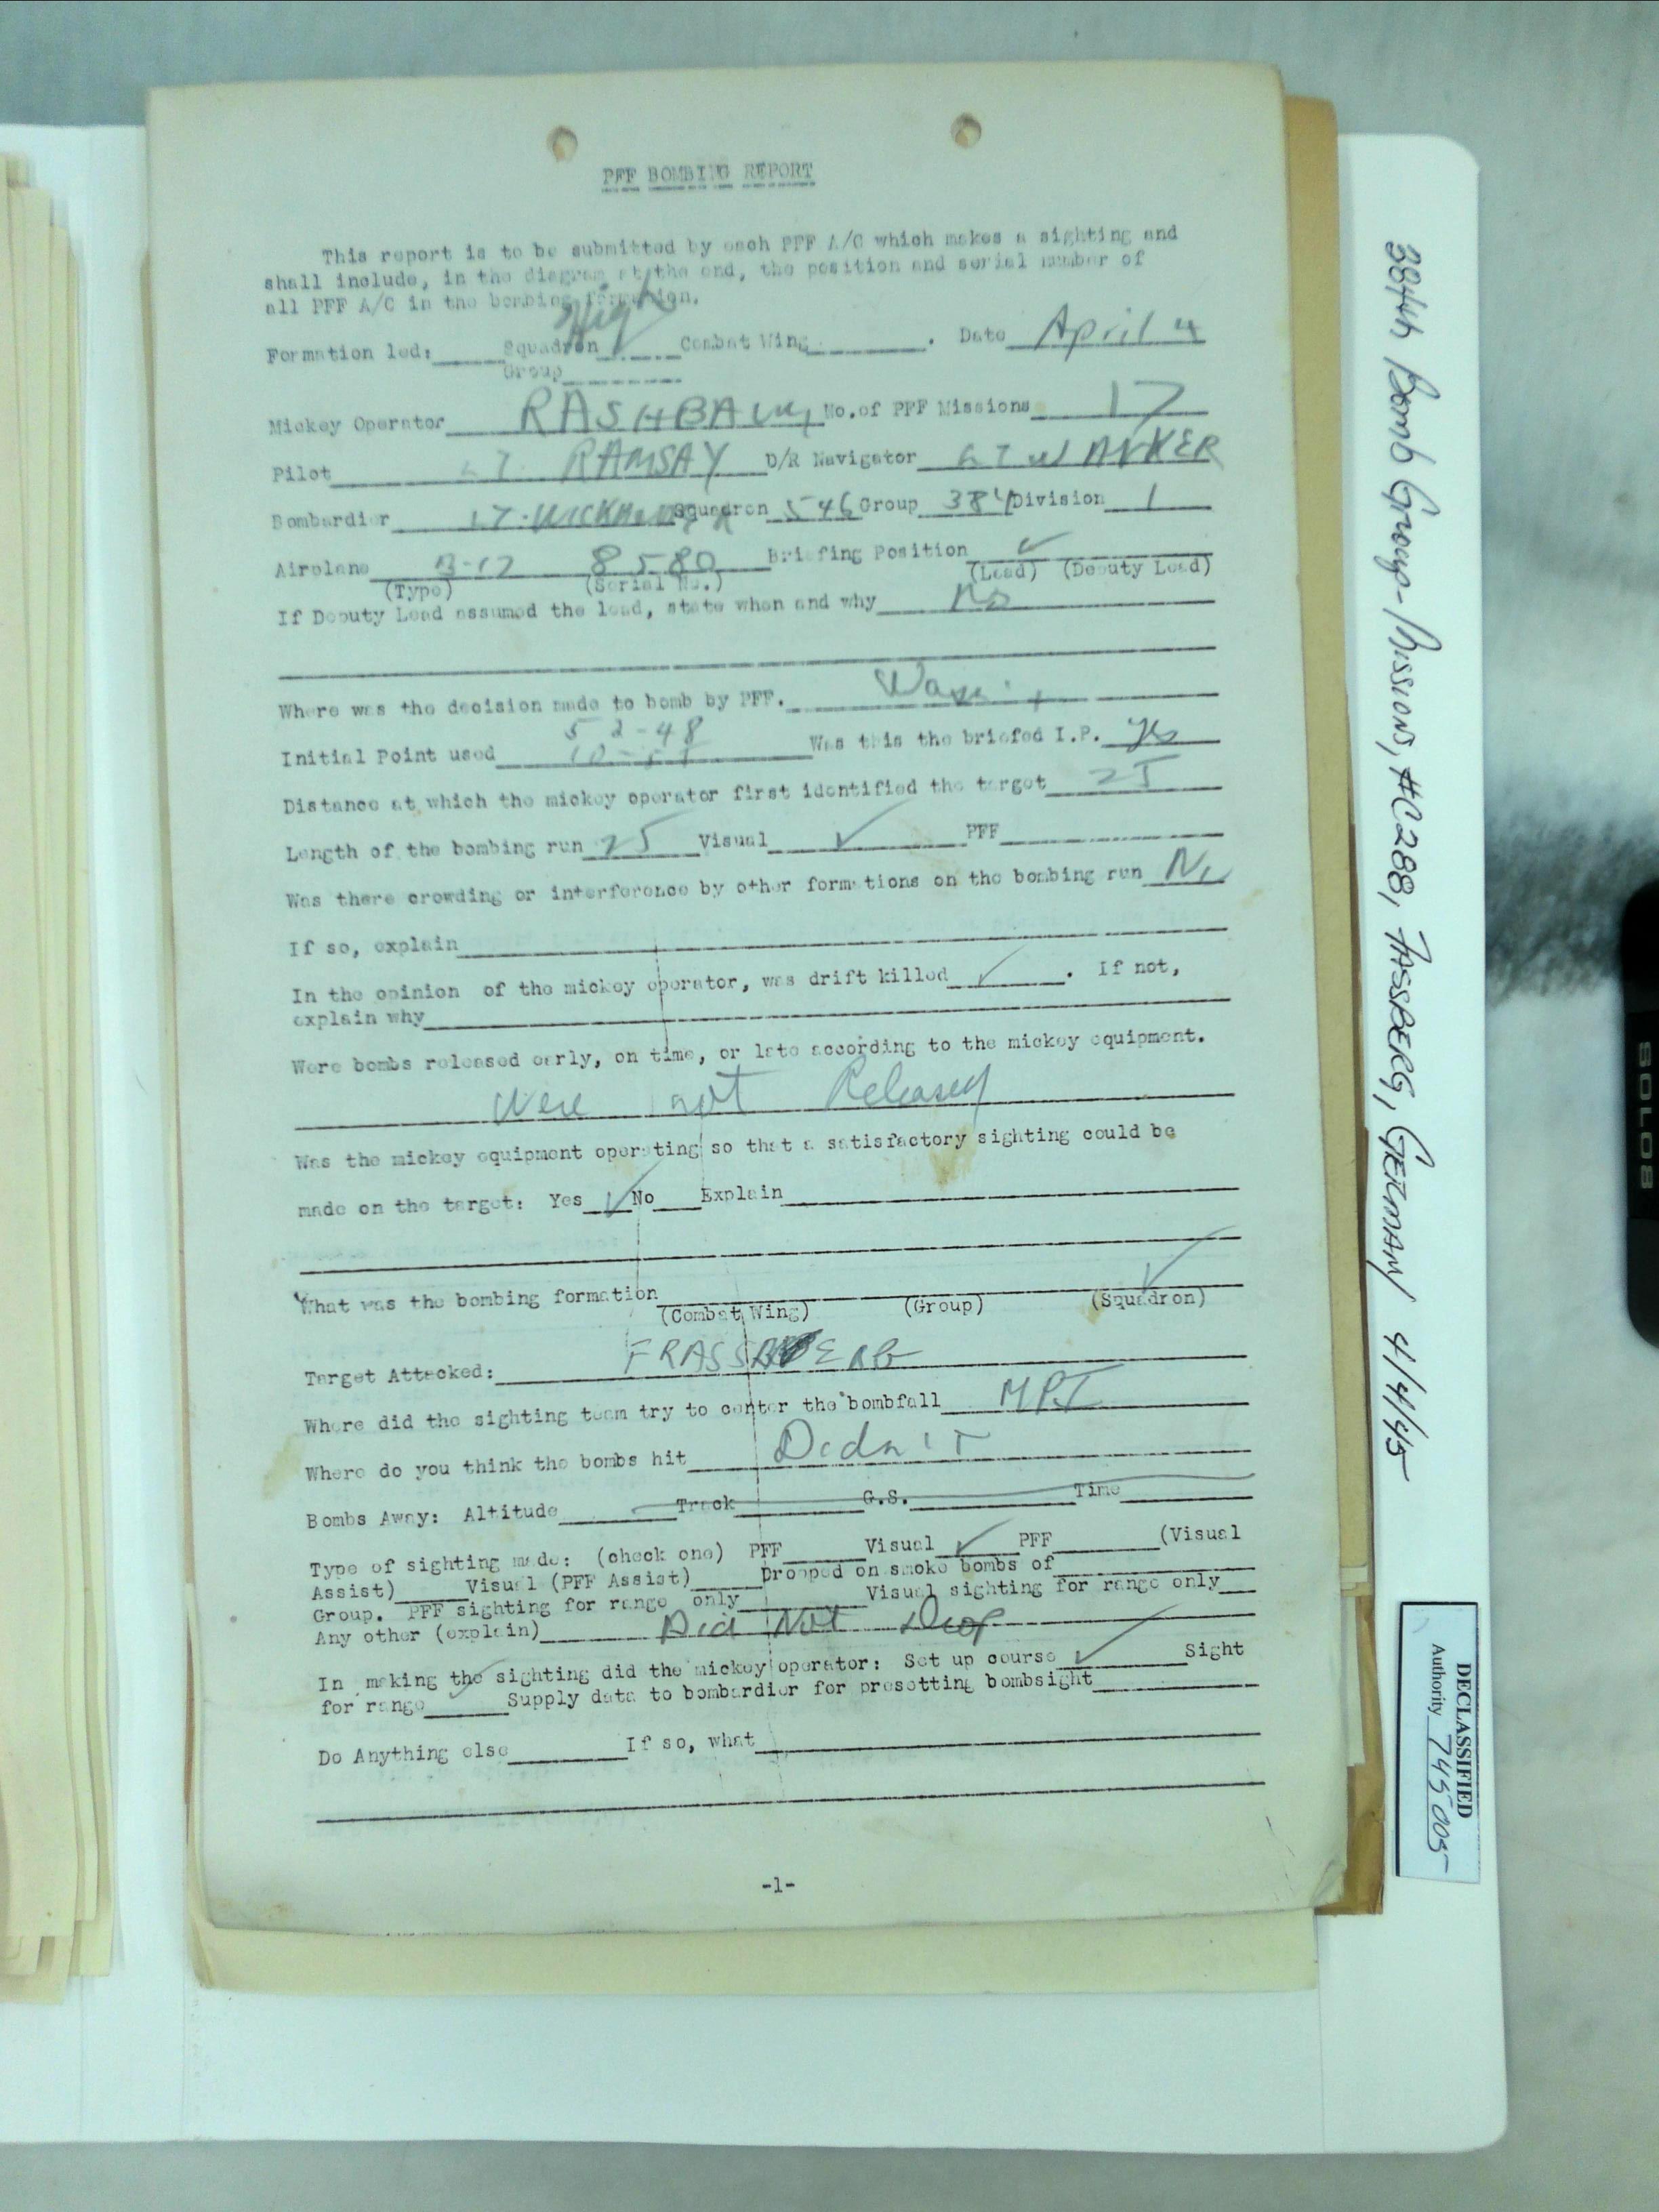 PFF BOMBING REPORT
This report is to be submitted by each PFF A/C which makes a sighting and
shall include, in the diagram at the end, the position and serial number of
all PFF A/C in the bombing formation.
High
Formation led: Squadron ✓ Combat Wing . Date April 4
Group
Mickey Operator No. of PFF Missions 17
Pilot LT. RAMSAY D/R Navigator LT
Bombardier LT. Squadron 546 Group 384 Division 1
Airplane B-17 8580 Briefing Position ✓
(Type) (Serial No.) (Lead) (Deputy Lead)
If Deputy Lead assumed the lead, state when and why No
Where was the decision made to bomb by PFF.
52-48
Initial Point used Was this the briefed I.P. Yes
Distance at which the mickey operator first identified the target 25
Length of the bombing run 25 Visual ✓ PFF
Was there crowding or interference by other formations on the bombing run No
If so, explain
In the opinion of the mickey operator, was drift killed ✓ . If not,
explain why
Were bombs released early, on time, or late according to the mickey equipment.
Were not Released
Was the mickey equipment operating so that a satisfactory sighting could be
made on the target: Yes ✓ No Explain
What was the bombing formation ✓
(Combat Wing) (Group) (Squadron)
Target Attacked:
Where did the sighting team try to center the bombfall MPI
Where do you think the bombs hit Didn't
Bombs Away: Altitude Track G.S. Time
Type of sighting made: (check one) PFF Visual ✓ PFF (Visual
Assist) Visual (PFF Assist) Dropped on smoke bombs of
Group. PFF sighting for range only Visual sighting for range only
Any other (explain) Did Not Drop
In making the sighting did the mickey operator: Set up course ✓ Sight
for range ✓ Supply data to bombardier for presetting bombsight
Do Anything else If so, what
-1-
384th Bomb Group-Missions, #C288, FASSBERG, GERMANY 4/4/45
DECLASSIFIED
Authority 745005
SOLO8